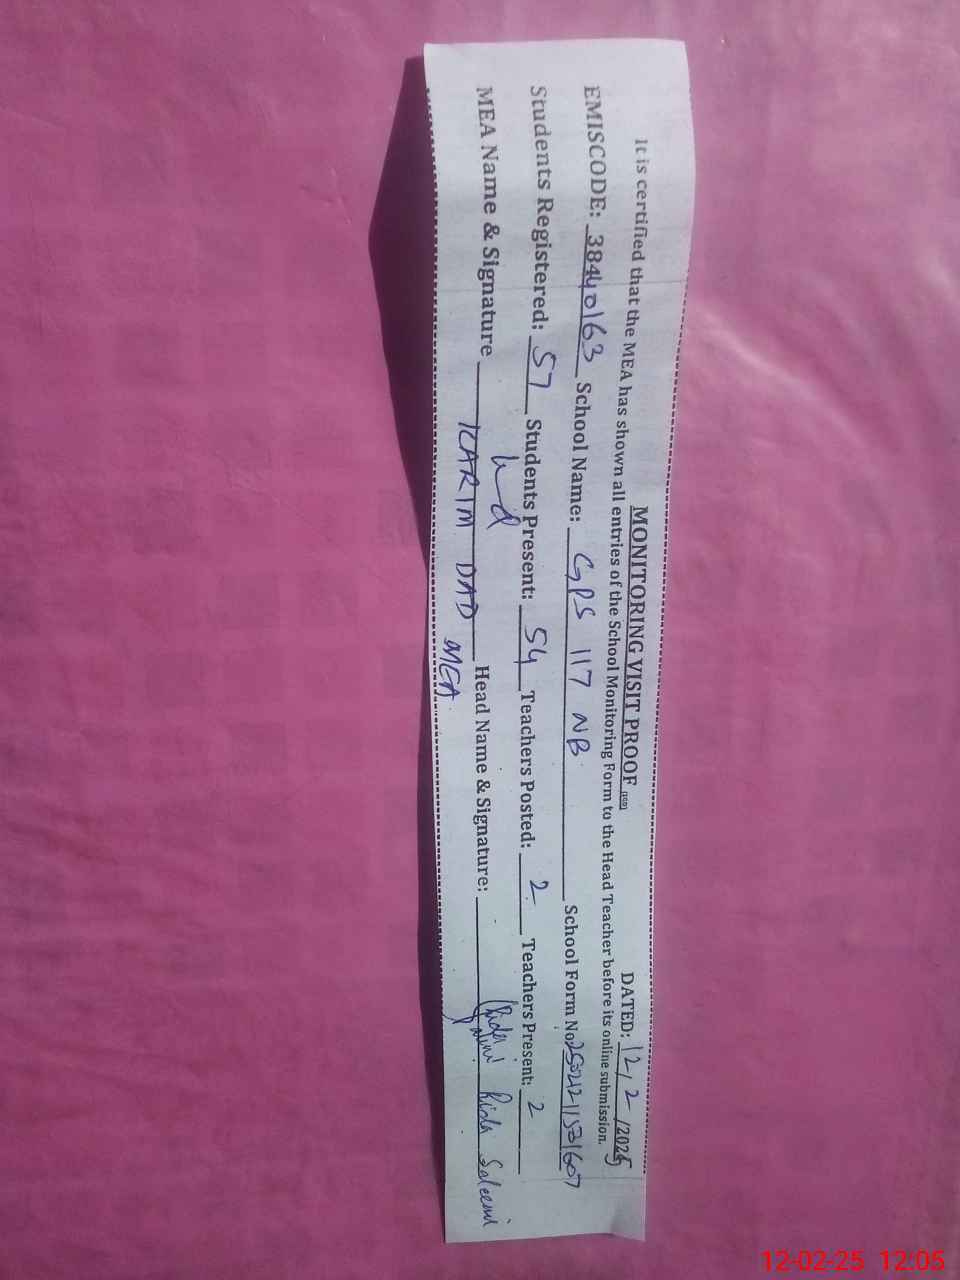 MONITORING VISIT PROOF DATED: 12/2/2025
It is certified that the MEA has shown all entries of the School Monitoring Form to the Head Teacher before its online submission.
EMISCODE: 38440163 School Name: GPS 117 NB School Form No
Students Registered: 57 Students Present: 54 Teachers Posted: 2 Teachers Present: 2
MEA Name & Signature KARIM DAD MEA Head Name & Signature: Rida Saleemi
12-02-25 12:05